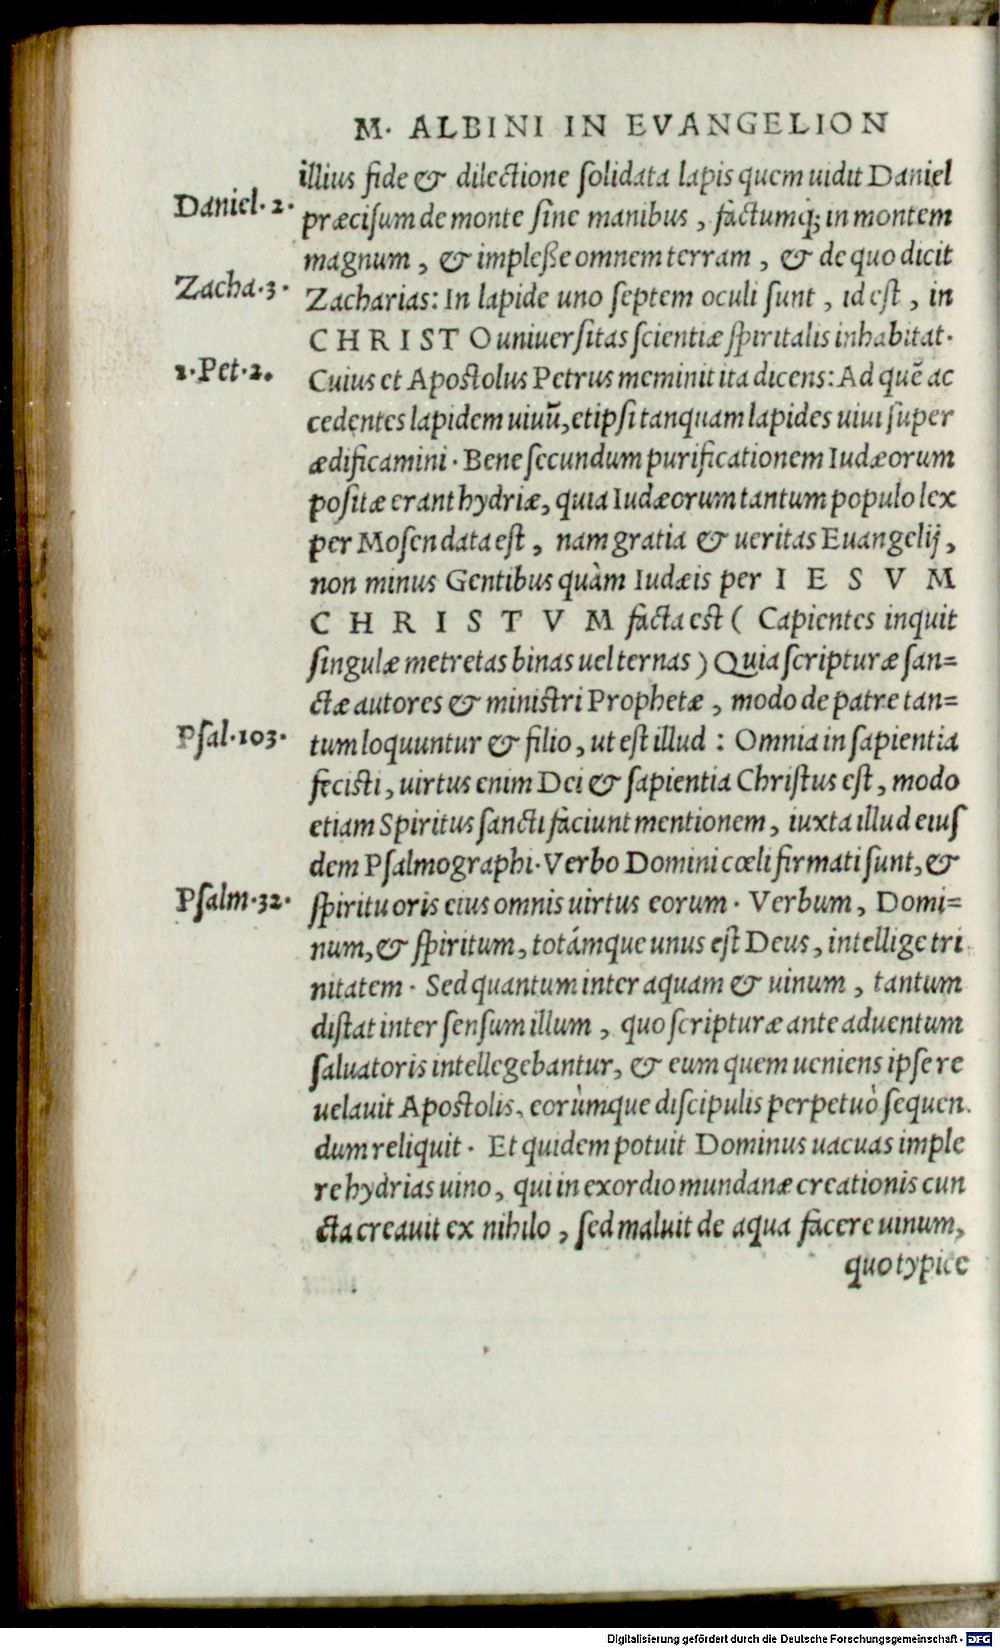 M. ALBINI IN EVVANGELION
illius fide & dilectione solidata lapis quem uidit Daniel
Daniel. 2.
præcisum de monte sine manibus, factumq́; in montem
magnum, & implesse omnem terram, & de quo dicit
Zacha. 3.
Zacharias: In lapide uno septem oculi sunt, id est, in
CHRISTO uniuersitas scientiæ spiritalis inhabitat.
1. Pet. 2.
Cuius et Apostolus Petrus meminit ita dicens: Ad quē ac
cedentes lapidem uiuū, et ipsi tanquam lapides uiui super
ædificamini. Bene secundum purificationem Iudæorum
positæ erant hydriæ, quia Iudæorum tantum populo lex
per Mosen data est, nam gratia & ueritas Euangelij,
non minus Gentibus quàm Iudæis per IESVM
CHRISTVM facta est (Capientes inquit
singulæ metretas binas uel ternas) Quia scripturæ san=
ctæ autores & ministri Prophetæ, modo de patre tan=
Psal. 103.
tum loquuntur & filio, ut est illud: Omnia in sapientia
fecisti, uirtus enim Dei & sapientia Christus est, modo
etiam Spiritus sancti faciunt mentionem, iuxta illud eius
dem Psalmographi. Verbo Domini cœli firmati sunt, &
Psalm. 32.
spiritu oris eius omnis uirtus eorum. Verbum, Domi=
num, & spiritum, totámque unus est Deus, intellige tri
nitatem. Sed quantum inter aquam & uinum, tantum
distat inter sensum illum, quo scripturæ ante aduentum
saluatoris intellegebantur, & eum quem ueniens ipse re
uelauit Apostolis, eorùmque discipulis perpetuò sequen
dum reliquit. Et quidem potuit Dominus uacuas imple
re hydrias uino, qui in exordio mundanæ creationis cun
cta creauit ex nihilo, sed maluit de aqua facere uinum,
quo typice
Digitalisierung gefördert durch die Deutsche Forschungsgemeinschaft - DFG